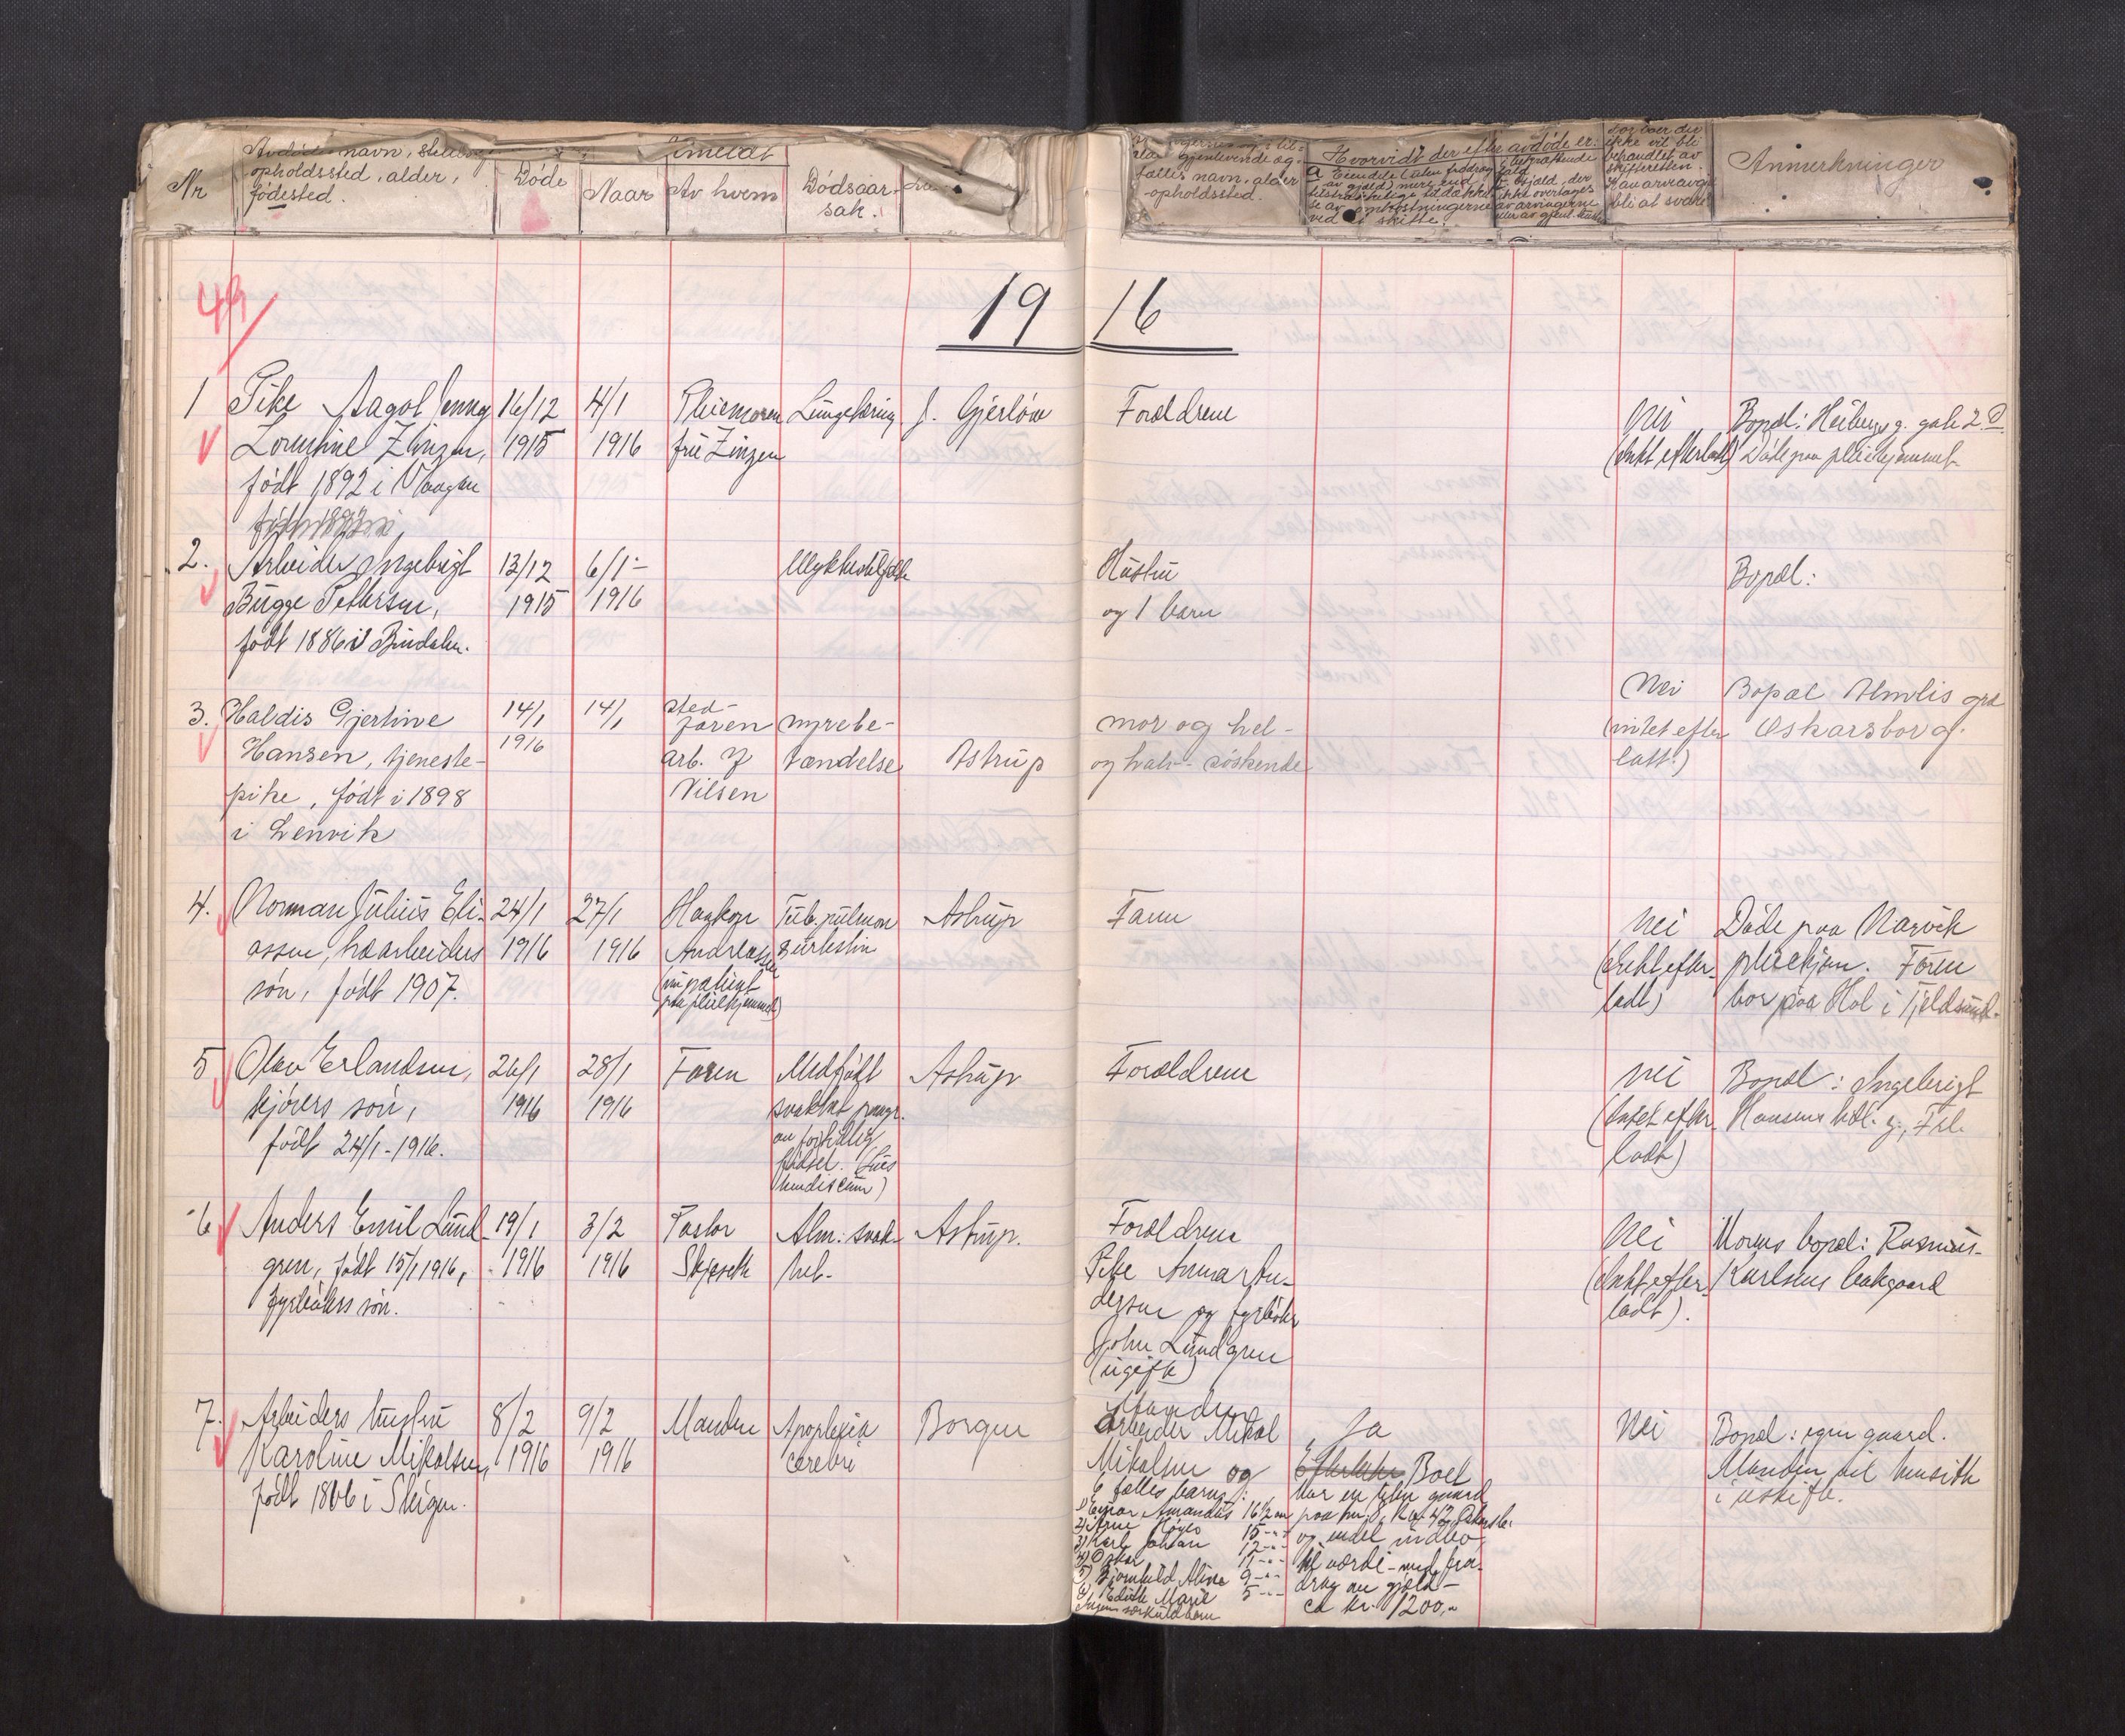 Nr
Avdødes navn, stilling
opholdssted, alder,
fødested.
Døde
Anmeldt
Naar
Av hvem
Dødsaar-
sak.
gjenlevende æg-
tefælles navn, alder
-opholdssted.
Hvorvidt der efter avdøde er:
Anmerkninger
49
19 16
1
Pike Aagot Jenny
født 1892 i Vaagan
16/12
1915
4/1
1916
Pleiemoren
fru Zinzen
Lungetæring
J. Gjerløw
Forældrene
Nei
(Intet efterladt)
Bopæl: Heibergs g. gate 2 D.
Døde paa pleiehjemmet
2.
Arbeider Ingebrigt
Bugge Pettersen,
født 1886 i Bindalen.
13/12
1915
6/1-
1916
Ulykkestilfælde
Hustru
og 1 barn
Bopæl:
3.
Haldis Gjertine
Hansen, tjeneste-
pike, født i 1898
i Lenvik
14/1
1916
14/1
sted-
faren
arb. J
Nilsen
nyrebe-
tændelse
Astrup
mor og hel-
og halv-søskende
Nei
(intet efter
latt)
Bopæl Almlis grd
Oskarsborg.
4.
Norman Julius Eli-
assen, havarbeiders
søn, født 1907.
24/1
1916
27/1
1916
Haakon
Andreassen
(nu patient
paa pleiehjemmet)
Tub. pulmon
& intestin
Astrup
Faren
Nei
(Intet efter-
ladt)
Døde paa Narvik
pleiehjem. Faren
bor paa Hol i Tjeldsund.
5
Olav Erlandsen,
kjørers søn,
født 24/1-1916.
26/1
1916
28/1
1916
Faren
Medfødt
svakhet paagr.
av fortidlig
fødsel.
Astrup
Forældrene
Nei
(Intet efter-
ladt)
Bopæl: Ingebrigt
Hansens
6
Anders Emil Lund-
gren, født 15/1 1916,
fyrbøters søn.
19/1
1916
3/2
1916
Pastor
Skjeseth
Alm. svak-
het-
Astrup.
Forældrene
Pike Anna An-
dersen og fyrbøter
John Lundgren
(ugift)
Nei
(Intet efter-
ladt).
Morens bopæl: Rasmus-
Karlsens bakgaard
7.
Arbeiders hustru
Karoline Mikalsen,
født 1866 i Steigen.
8/2
1916
9/2
1916
Manden
Apoplexia
cerebri
Borgen
Manden
arbeider Mikal
Mikalsen og
6 fælles barn:
1) Einar Amandus 16 1/2 aar
2) Arne 15 -"-
3) Karl Johan 12 -"-
4) Oskar 11 -"-
5) Bjørnhild Alvine 9 -"-
6) Edith Marie 5 -"-
Ingen særkuldbarn
Ja
Boet
har en liten gaard
og endel indbo,
til værdi - med fra-
drag av gjæld -
ca kr. 1200,-
Nei
Bopæl: egen gaard.
Manden vil hensitte
i uskifte.